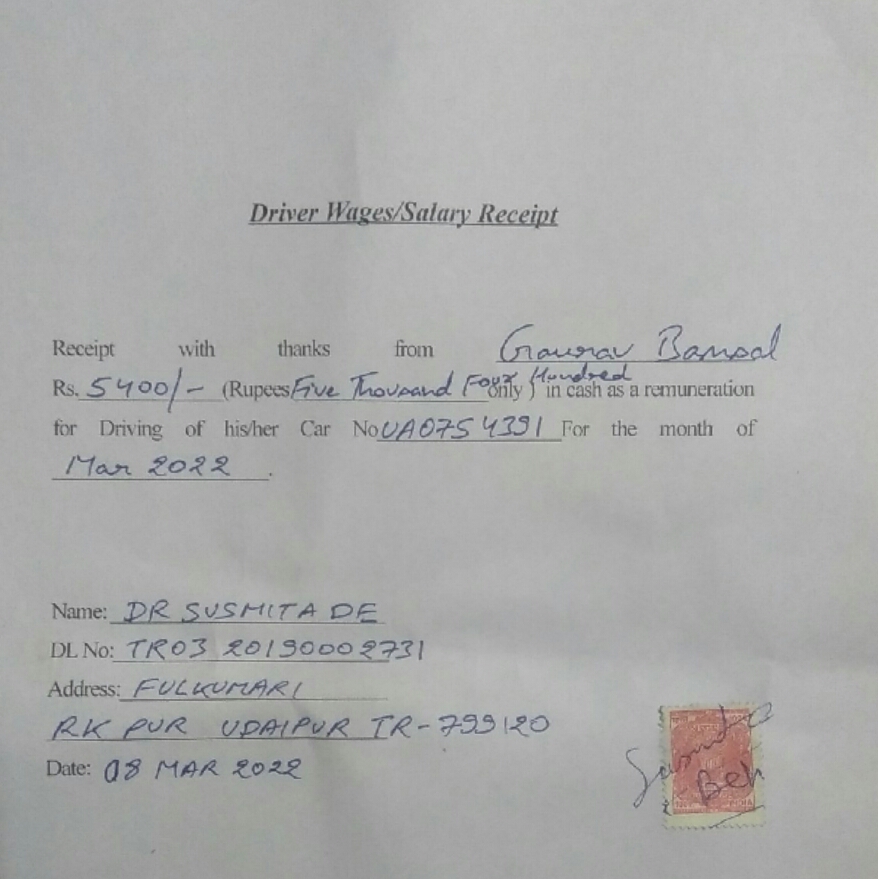 Driver Wages/Salary Receipt
Receipt with thanks from Gaurav Bansal
Rs. 5400/- (Rupees Five Thousand Four Hundred only) in cash as a remuneration
for Driving of his/her Car No UA075 4391 For the month of
Mar 2022.
Name: DR SUSMITA DE
DL No: TR03 20190002731
Address: FULKUMARI
RK PUR UDAIPUR TR-799120
Date: 08 MAR 2022
INDIA